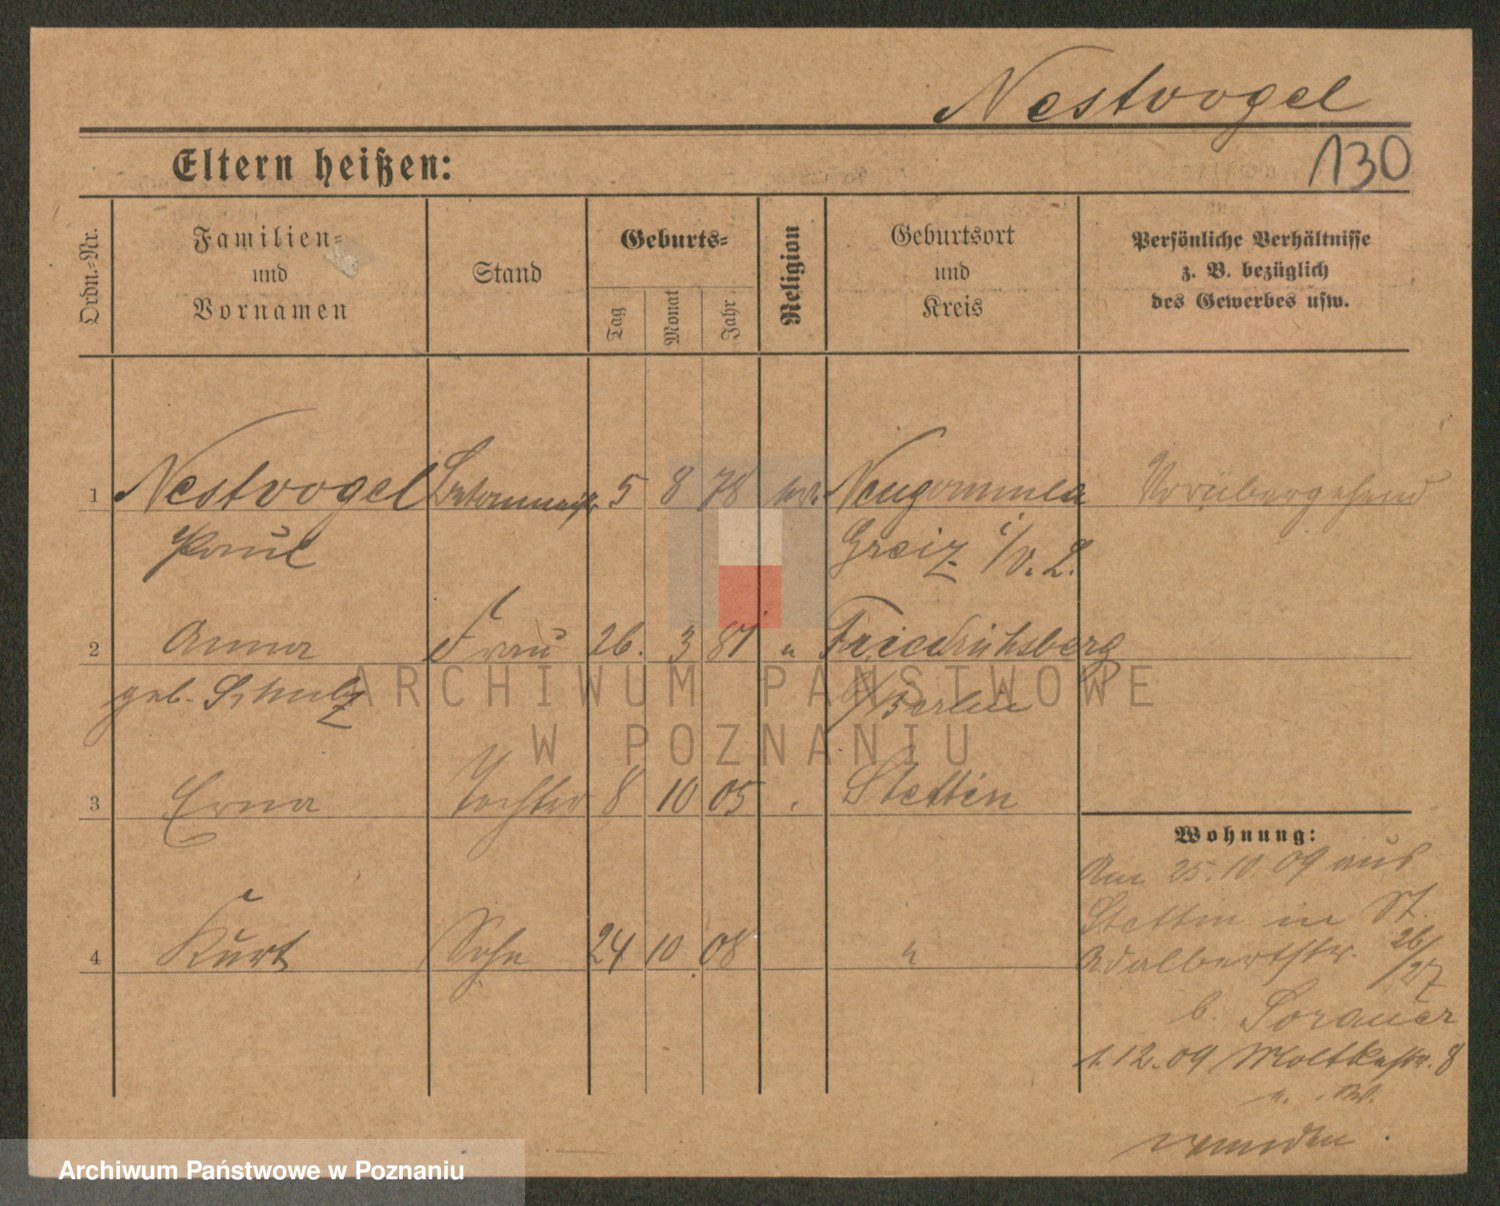 Nestvogel
130
Eltern heißen:
Ordn.-Nr.
Familien-
und
Vornamen
Stand
Geburts-
Tag
Monat
Jahr
Religion
Geburtsort
und
Kreis
Persönliche Verhältnisse
z. B. bezüglich
des Gewerbes usw.
1 Nestvogel 5 8 78 Neugommla Vorübergehend
Paul Greiz i/V. L.
2 Anna Frau 26. 3 81 " Friedrichsberg
geb. Schulz b/Berlin
3 Erna Tochter 8 10 05 Stettin
4 Kurt Sohn 24 10 08 "
Wohnung:
Am 25.10.09 aus
Stettin in St.
Adalbertstr. 26/27
b. Sorauer
1.12.09 Moltkestr. 8
ARCHIWUM PAŃSTWOWE
W POZNANIU
Archiwum Państwowe w Poznaniu